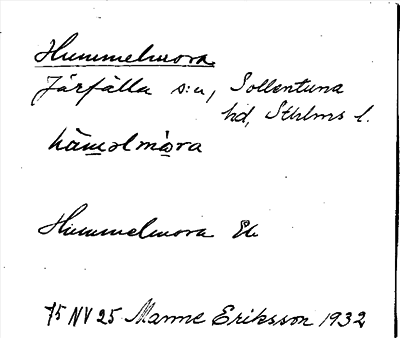 Hummelmora
Järfälla s:n, Sollentuna
hd, Sthlms l.
häməlmåra
Hummelmora Ek
75 NV 25 Manne Eriksson 1932